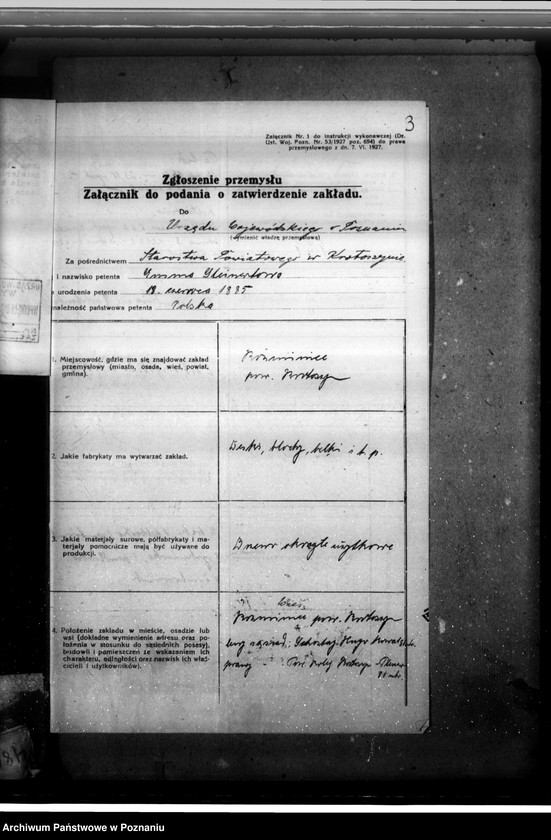 3
Załącznik Nr. 1 do instrukcji wykonawczej (Dz.
Ust. Woj. Pozn. Nr. 53/1927 poz. 694) do prawa
przemysłowego z dn. 7. VI. 1927.
Zgłoszenie przemysłu
Załącznik do podania o zatwierdzenie zakładu.
Do
Urzędu Wojewódzkiego w Poznaniu
(wymienić władzę przemysłową)
Za pośrednictwem Starostwa Powiatowego w Krotoszynie
i nazwisko petenta Emma
urodzenia petenta 18. czerwca 1885
należność państwowa petenta Polska
1. Miejscowość, gdzie ma się znajdować zakład
przemysłowy (miasto, osada, wieś, powiat,
gmina).
Rozdrażewo
pow. Krotoszyn
2. Jakie fabrykaty ma wytwarzać zakład.
Deski, blochy, belki i t. p.
3. Jakie materjały surowe, półfabrykaty i ma-
terjały pomocnicze mają być używane do
produkcji.
Drzewo okrągłe użytkowe
4. Położenie zakładu w mieście, osadzie lub
wsi (dokładne wymienienie adresu oraz po-
łożenia w stosunku do sąsiednich posesyj,
budowli i pomieszczeń ze wskazaniem ich
charakteru, odległości oraz nazwisk ich wła-
ścicieli i użytkowników).
Wieś
pow. Krotoszyn
lewy sąsiad:
prawy
Archiwum Państwowe w Poznaniu